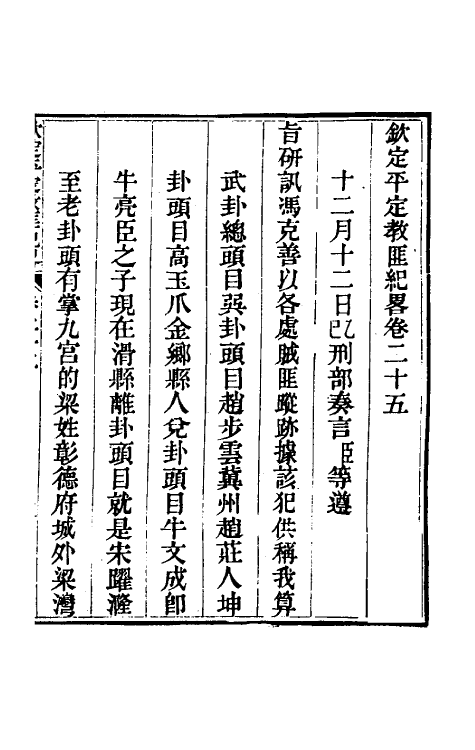 欽定平定教匪紀畧卷二十五
十二月十二日己巳刑部奏言臣等遵
旨研訊馮克善以各處賊匪蹤跡據該犯供稱我算
武卦總頭目巽卦頭目趙步雲冀州趙莊人坤
卦頭目高玉爪金鄉縣人兌卦頭目牛文成卽
牛亮臣之子現在滑縣離卦頭目就是宋躍㴳
至老卦頭有掌九宮的梁姓彰德府城外梁灣